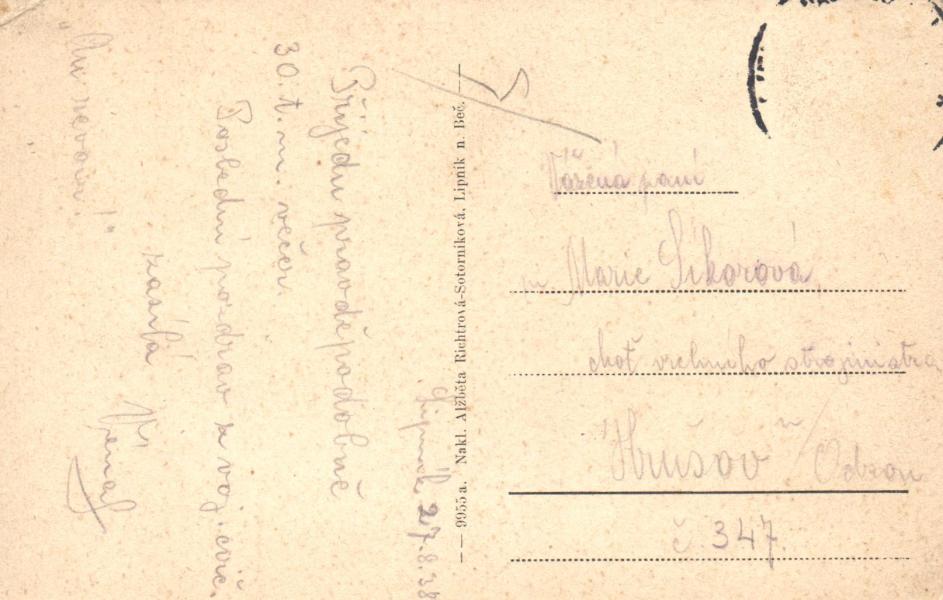 Lipník 27.8.38
Přijedu pravděpodobně
30. t. m. večer.
Poslední pozdrav z voj. cvič.
zasílá
"Au revoir!"
9955 a. Nakl. Alžběta Richtrová-Sotorníková, Lipník n. Beč.
Vážená paní
Marie Sikorová
choť vrchního strojmistra
Hrušov n/Odrou
č 347.